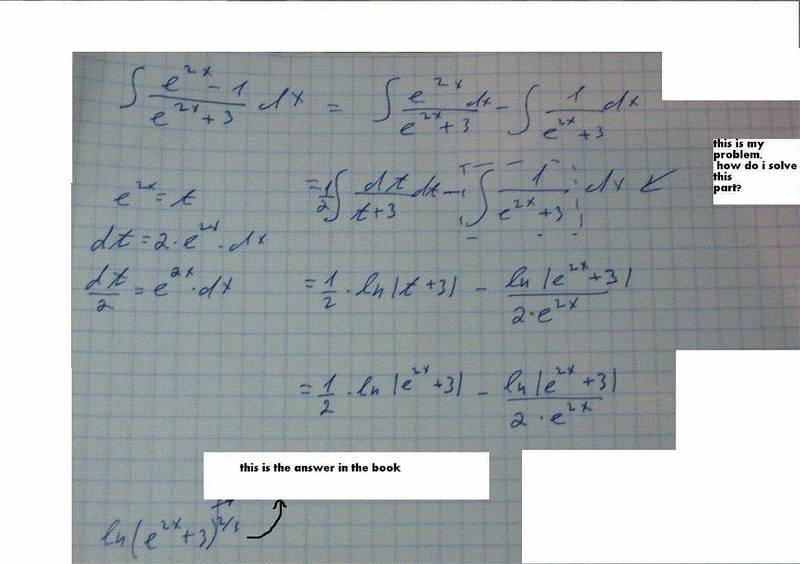 ∫ (e^{2x} - 1)/(e^{2x} + 3) dx = ∫ e^{2x} dx/(e^{2x} + 3) - ∫ 1/(e^{2x} + 3) dx
this is my
problem,
how do i solve
this
part?
e^{2x} = t
dt = 2 · e^{2x} · dx
dt/2 = e^{2x} · dx
= 1/2 ∫ dt/(t + 3) dt - ∫ 1/(e^{2x} + 3) dx
= 1/2 · ln|t + 3| - ln|e^{2x} + 3|/(2 · e^{2x})
= 1/2 · ln|e^{2x} + 3| - ln|e^{2x} + 3|/(2 · e^{2x})
this is the answer in the book
ln(e^{2x} + 3)^{2/3}